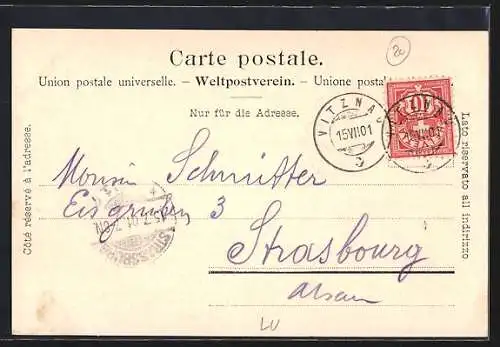 20
Carte postale.
Union postale universelle. – Weltpostverein. – Unione posta
Nur für die Adresse.
Côté réservé à l'adresse.
Lato riservato all indirizzo
10
VITZNAU
15 VII 01
VITZNAU
15 VII 01
Schmitter
3
Strasbourg
Alsace
LU